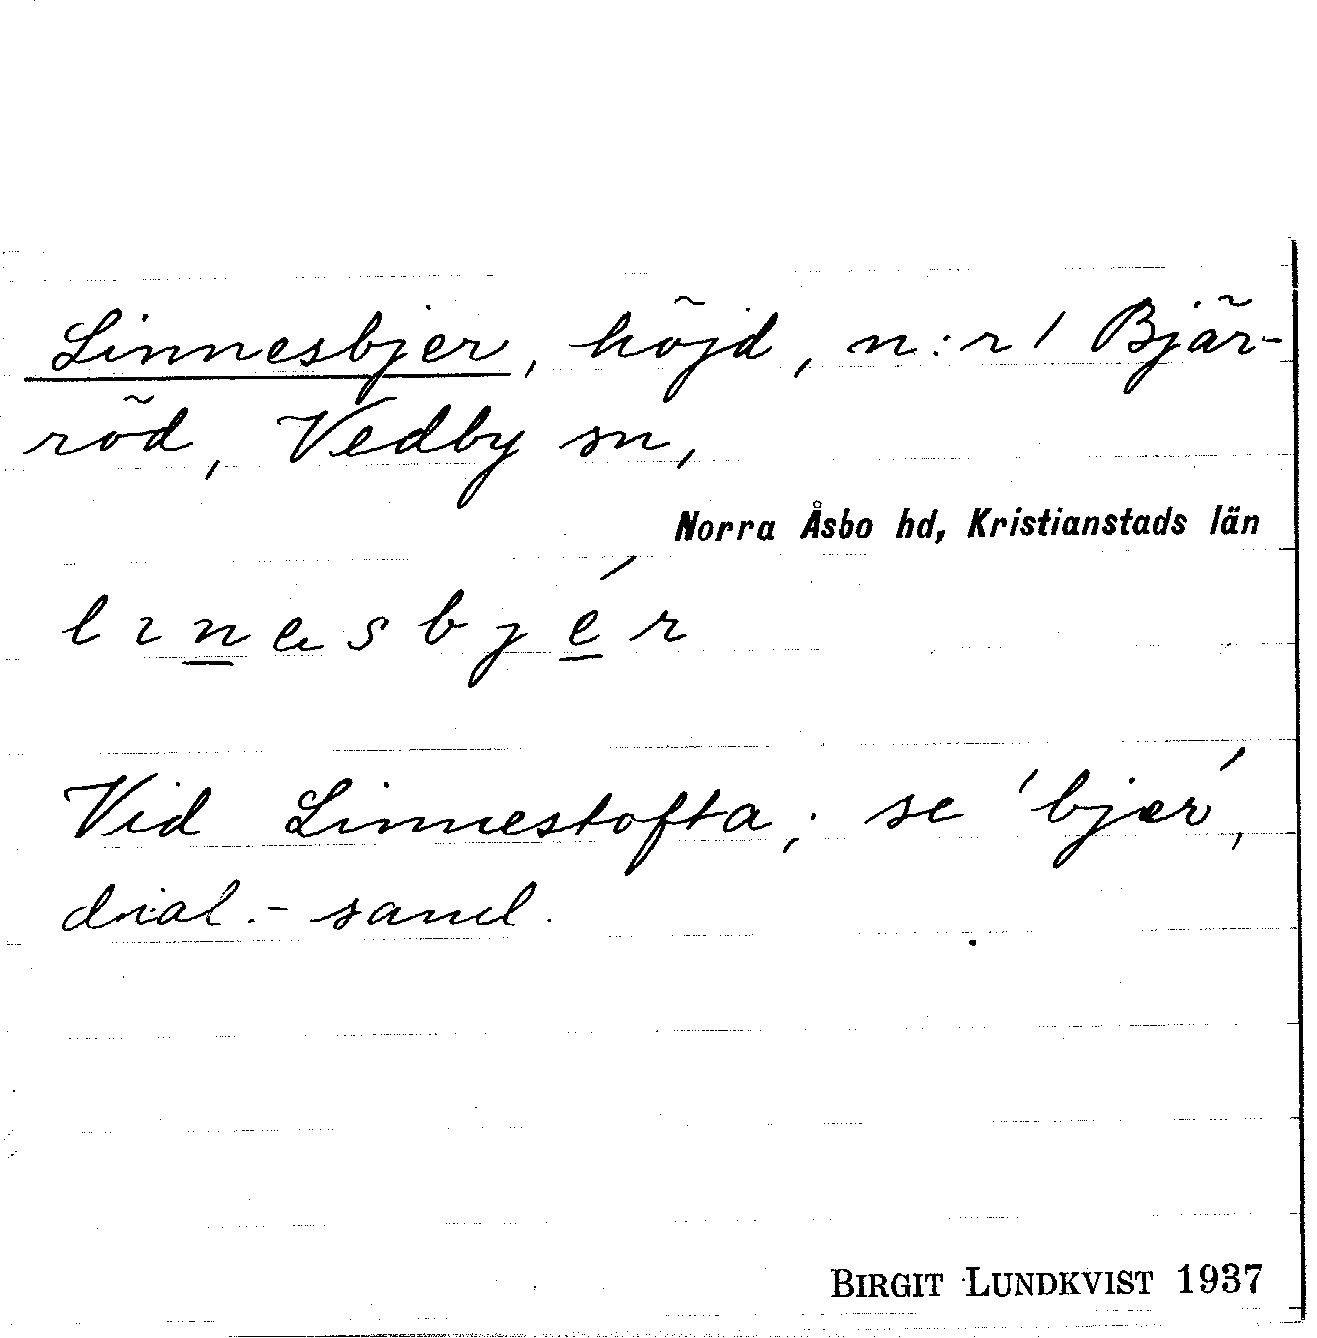 Linnesbjer, höjd, n:r 1 Bjär-
röd, Vedby sn,
Norra Åsbo hd, Kristianstads län
lınəsbjér
Vid Linnestofta; se 'bjer',
dial.-saml.
BIRGIT LUNDKVIST 1937